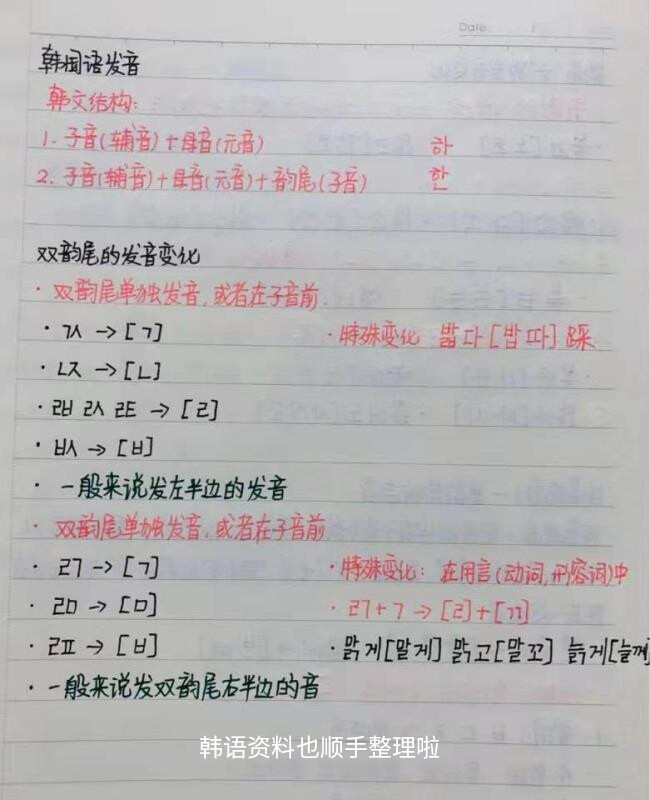 Date.
韩国语发音
韩文结构:
1. 子音(辅音)+母音(元音) 하
2. 子音(辅音)+母音(元音)+韵尾(子音) 한
双韵尾的发音变化
· 双韵尾单独发音,或者在子音前
· ㄳ → [ㄱ] · 特殊变化 밟다[밥따] 踩
· ㄵ → [ㄴ]
· ㄼ ㄽ ㄾ → [ㄹ]
· ㅄ → [ㅂ]
· 一般来说发左半边的发音
· 双韵尾单独发音,或者在子音前
· ㄺ → [ㄱ] · 特殊变化: 在用言(动词,形容词)中
· ㄻ → [ㅁ] · ㄺ+ㄱ → [ㄹ]+[ㄲ]
· ㄿ → [ㅂ] · 맑게[말게] 맑고[말꼬] 늙게[늘께
· 一般来说发双韵尾右半边的音
韩语资料也顺手整理啦